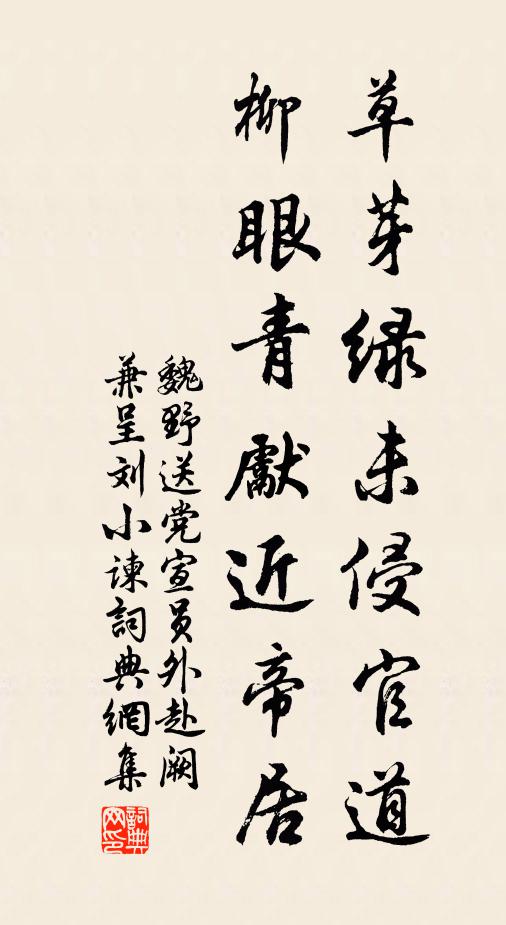 草芽绿未侵官道
柳眼青獻近帝居
魏野送党宣员外赴阙
兼呈刘小谏詞典網集
詞典网印